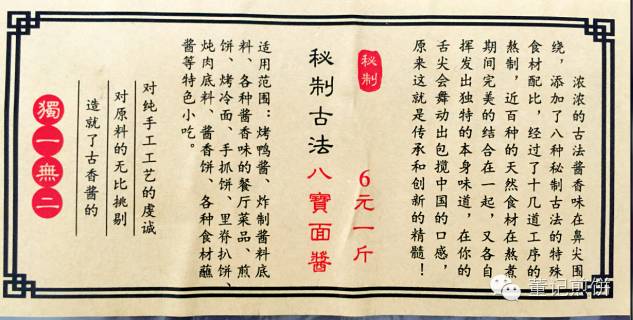 浓浓的古法酱香味在鼻尖围
绕，添加了八种秘制古法的特殊
食材配比，经过了十几道工序的
熬制，近百种的天然食材在熬煮
期间完美的结合在一起，又各自
挥发出独特的本身味道，在你的
舌尖会舞动出包揽中国的口感，
原来这就是传承和创新的精髓！
秘制
6元一斤
秘制古法八寶面醬
适用范围：烤鸭酱、炸制酱料底
料、各种酱香味的餐厅菜品、煎
饼、烤冷面、手抓饼、里脊扒饼、
炖肉底料、酱香饼、各种食材蘸
酱等特色小吃。
对纯手工工艺的虔诚
对原料的无比挑剔
造就了古香酱的
獨一無二
董记煎饼